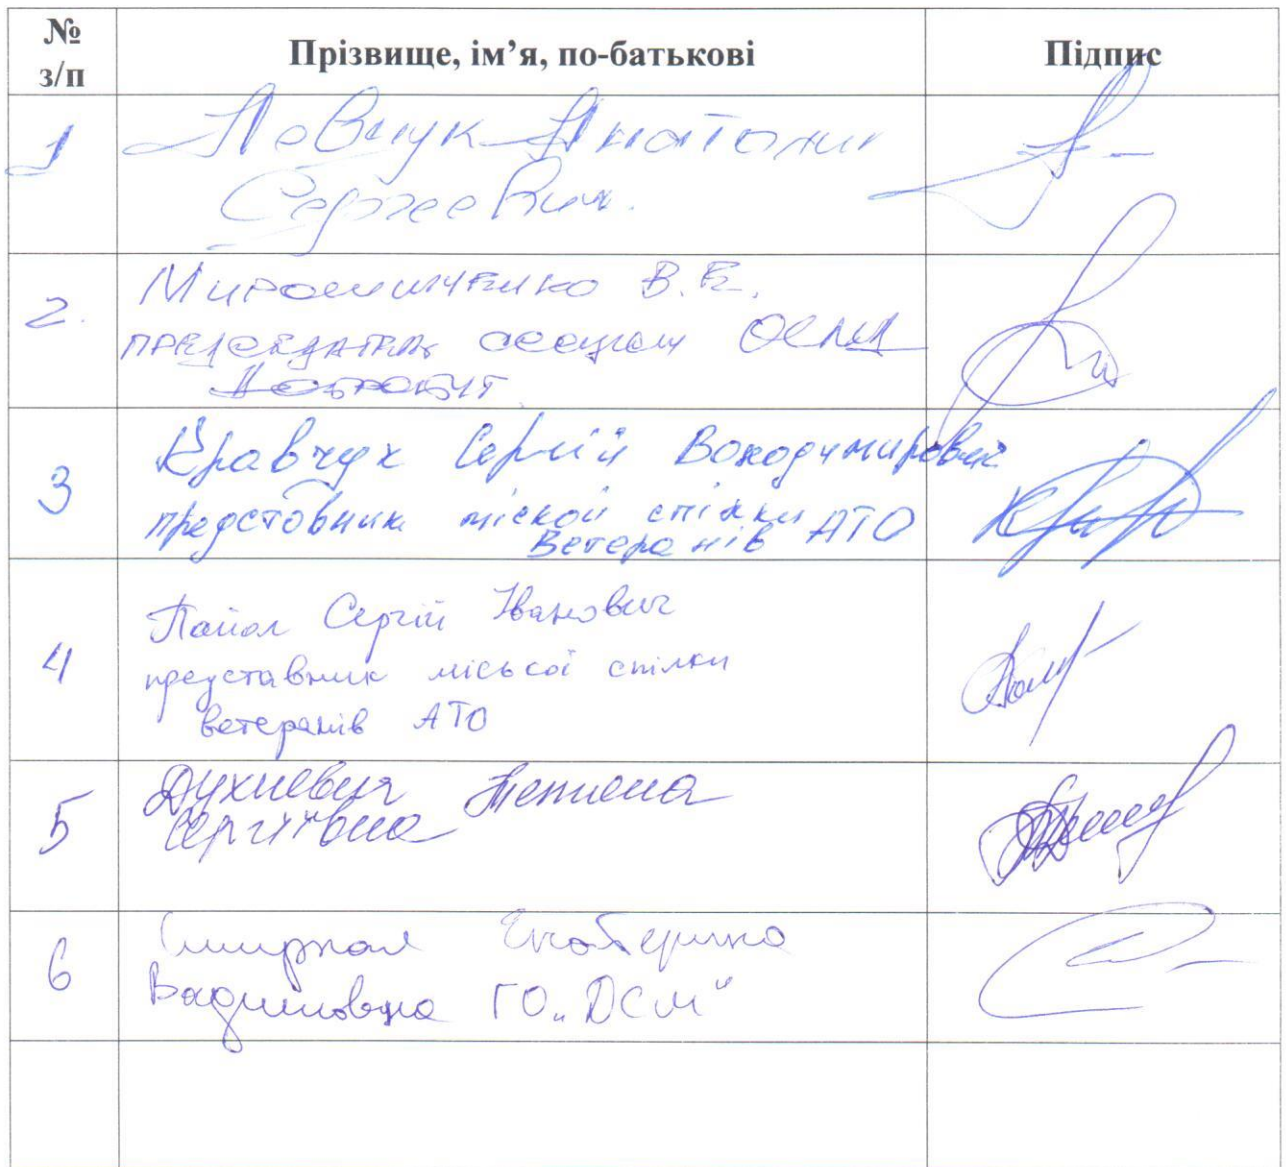 № з/п
Прізвище, ім’я, по-батькові
Підпис
1
Ловчук Анатолии
Сергеевич.
2.
Мирошниченко В.Е.
председатель ОСМД
3
Кравчук Сергій Володимирович
предстовник міскої спілки
Ветеранів АТО
4
Сергій Іванович
представник міської спілки
ветеранів АТО
5
Духневич Тетяна
Сергіївна
6
Смирная Екатерина
Вадимовна ГО „ДСМ“